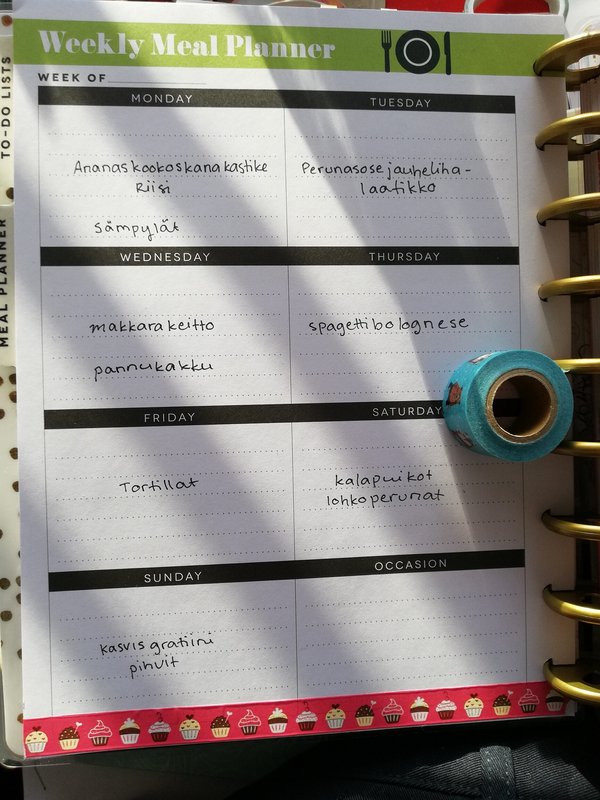 Weekly Meal Planner
WEEK OF
TO-DO LISTS
MEAL PLANNER
MONDAY
Ananaskookoskanakastike
Riisi
sämpylät
TUESDAY
Perunasosejauheliha-
laatikko
WEDNESDAY
makkarakeitto
pannukakku
THURSDAY
spagettibolognese
FRIDAY
Tortillat
SATURDAY
kalapuikot
lohkoperunat
SUNDAY
kasvisgratiini
pihvit
OCCASION